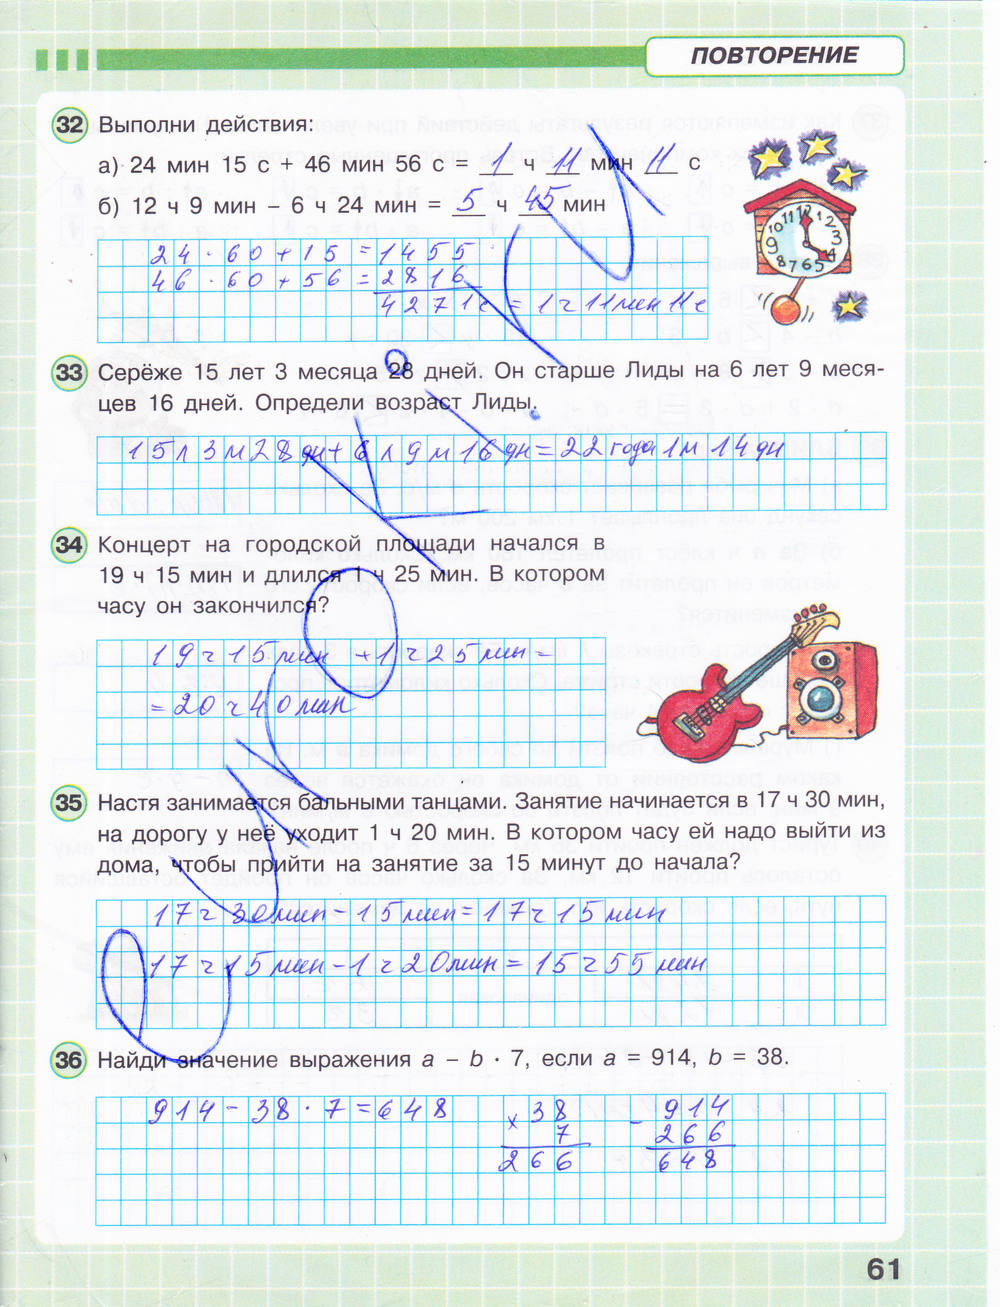 ПОВТОРЕНИЕ
32 Выполни действия:
а) 24 мин 15 с + 46 мин 56 с = 1 ч 11 мин 11 с
б) 12 ч 9 мин – 6 ч 24 мин = 5 ч 45 мин
24 · 60 + 15 = 1455
46 · 60 + 56 = 2816
4271с = 1 ч 11 мин 11 с
33 Серёже 15 лет 3 месяца 28 дней. Он старше Лиды на 6 лет 9 меся-
цев 16 дней. Определи возраст Лиды.
15 л 3 м 28 дн + 6 л 9 м 16 дн = 22 года 1 м 14 дн
34 Концерт на городской площади начался в
19 ч 15 мин и длился 1 ч 25 мин. В котором
часу он закончился?
19 ч 15 мин + 1 ч 25 мин =
= 20 ч 40 мин
35 Настя занимается бальными танцами. Занятие начинается в 17 ч 30 мин,
на дорогу у неё уходит 1 ч 20 мин. В котором часу ей надо выйти из
дома, чтобы прийти на занятие за 15 минут до начала?
17 ч 30 мин – 15 мин = 17 ч 15 мин
17 ч 15 мин – 1 ч 20 мин = 15 ч 55 мин
36 Найди значение выражения a – b · 7, если a = 914, b = 38.
914 – 38 · 7 = 648
× 38
7
266
– 914
266
648
61